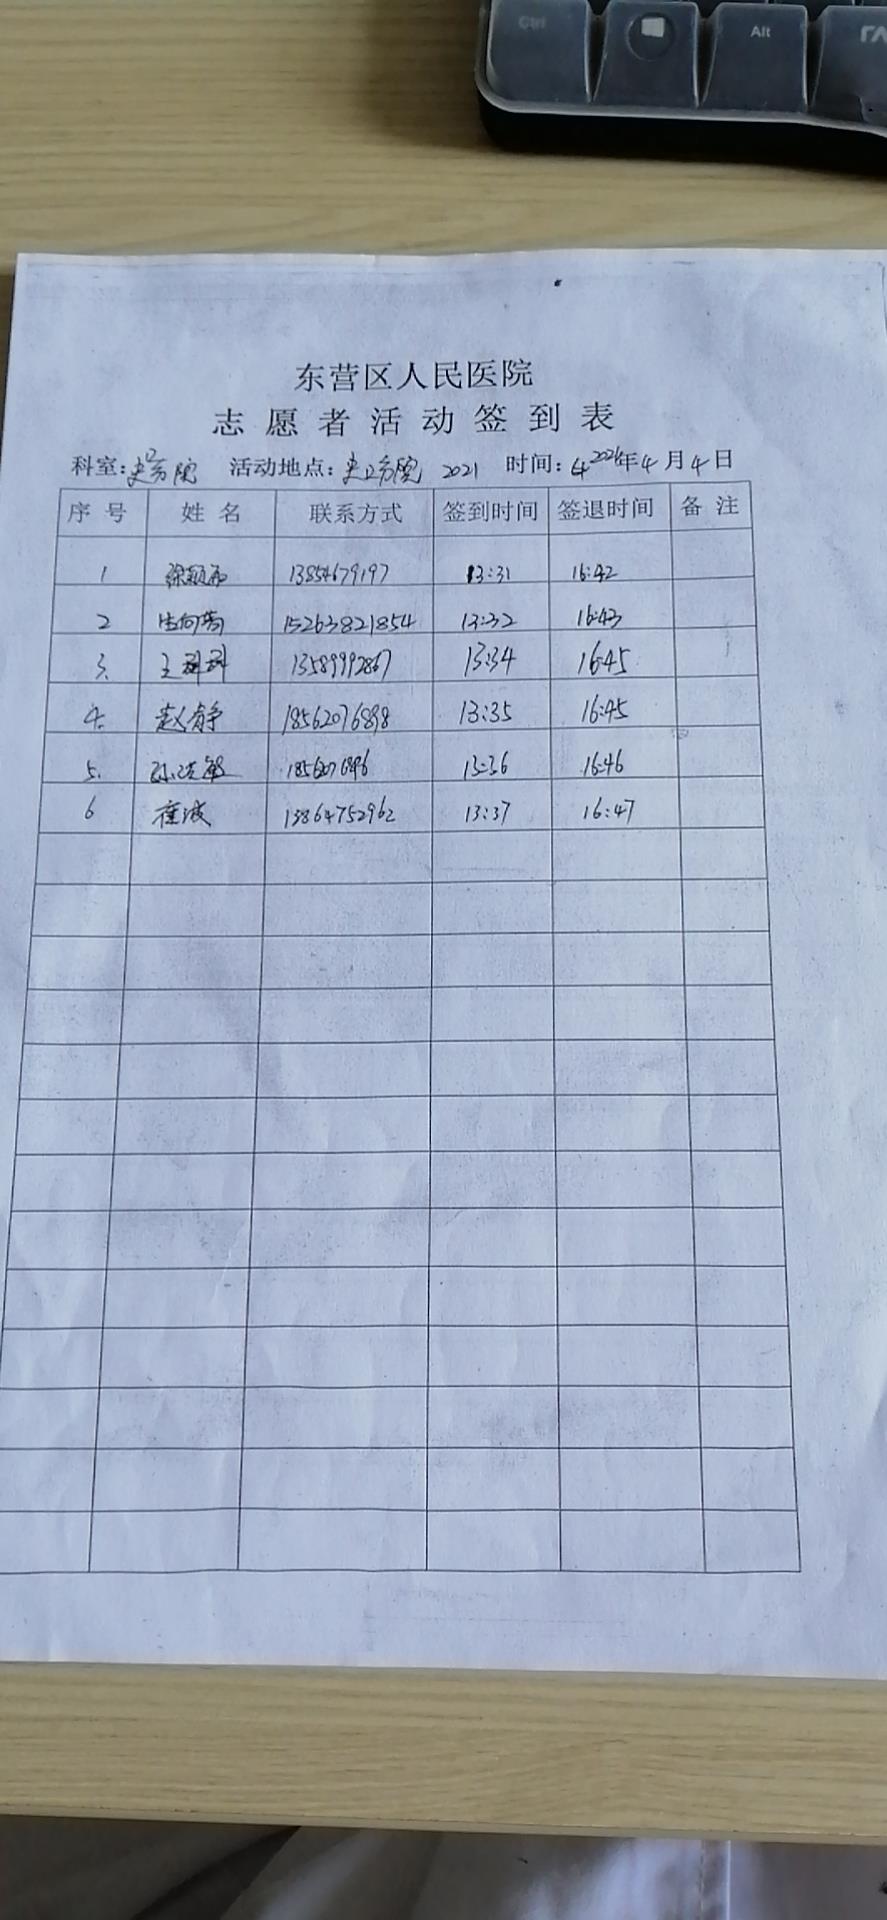 Ctrl Alt
东营区人民医院
志愿者活动签到表
科室: 史口分院 活动地点: 史口分院 2021 时间: 2021年4月4日
序号 姓名 联系方式 签到时间 签退时间 备注
1 13854679197 13:31 16:42
2 15263821854 13:32 16:43
3. 王珂珂 13589992867 13:34 16:45
4. 赵静 18562076898 13:35 16:45
5. 13:36 16:46
6 崔波 13864752962 13:37 16:47